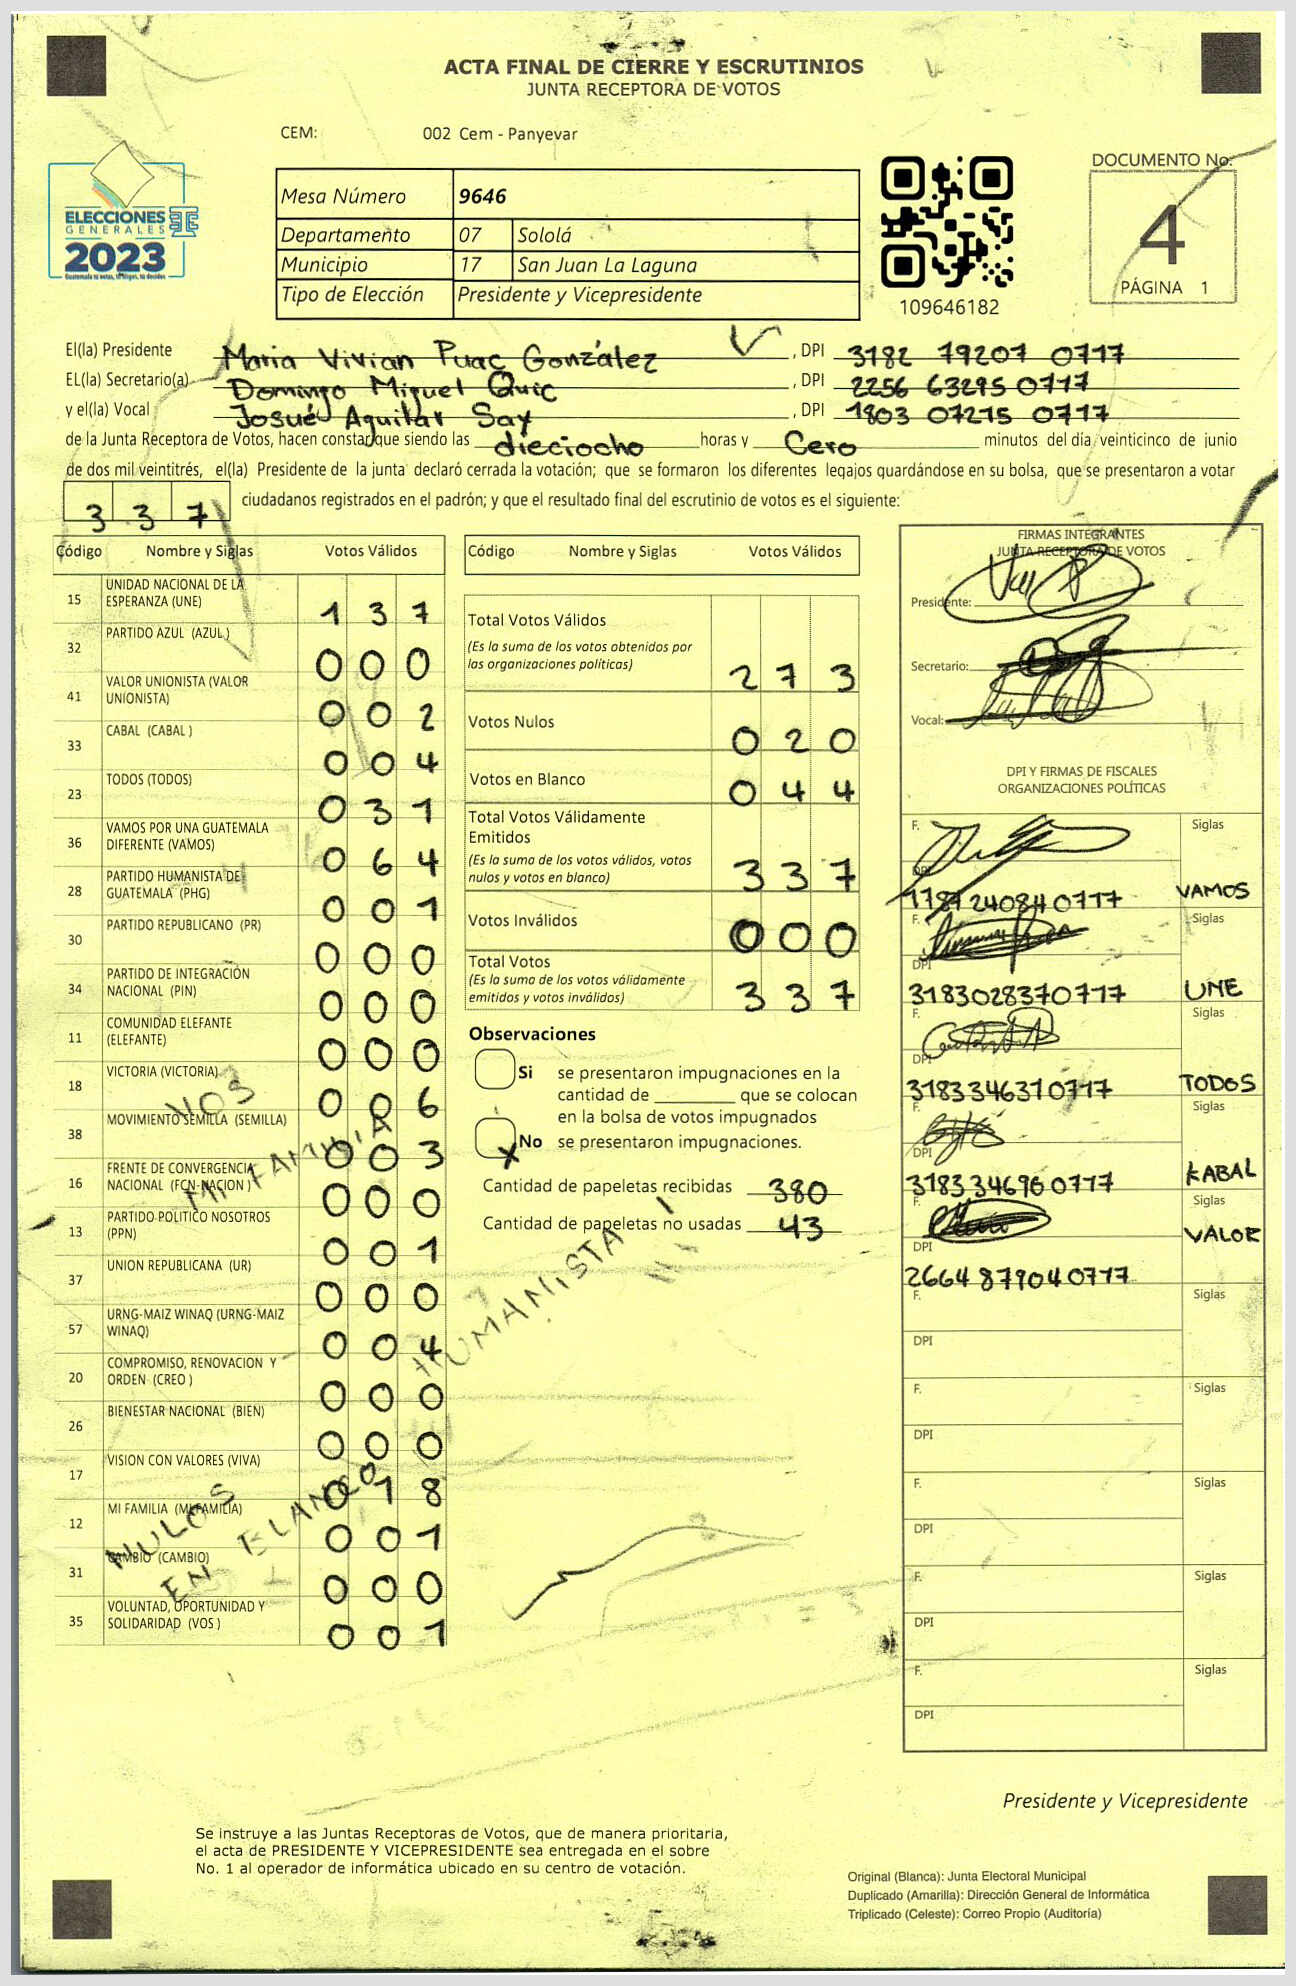 ACTA FINAL DE CIERRE Y ESCRUTINIOS
JUNTA RECEPTORA DE VOTOS
CEM: 002 Cem - Panyevar
DOCUMENTO No.
4
PÁGINA 1
ELECCIONES
GENERALES
2023
Mesa Número 9646
Departamento 07 Sololá
Municipio 17 San Juan La Laguna
Tipo de Elección Presidente y Vicepresidente
109646182
El(la) Presidente Maria Vivian Puac González , DPI 3182 79207 0717
EL(la) Secretario(a) Domingo Miguel Quic , DPI 2256 63295 0717
y el(la) Vocal Josué Aguilar Say , DPI 1803 07215 0717
de la Junta Receptora de Votos, hacen constar que siendo las dieciocho horas y Cero minutos del día veinticinco de junio
de dos mil veintitrés, el(la) Presidente de la junta declaró cerrada la votación; que se formaron los diferentes legajos guardándose en su bolsa, que se presentaron a votar
337 ciudadanos registrados en el padrón; y que el resultado final del escrutinio de votos es el siguiente:
Código Nombre y Siglas Votos Válidos
15 UNIDAD NACIONAL DE LA ESPERANZA (UNE) 137
32 PARTIDO AZUL (AZUL ) 000
41 VALOR UNIONISTA (VALOR UNIONISTA) 002
33 CABAL (CABAL ) 004
23 TODOS (TODOS) 031
36 VAMOS POR UNA GUATEMALA DIFERENTE (VAMOS) 064
28 PARTIDO HUMANISTA DE GUATEMALA (PHG) 001
30 PARTIDO REPUBLICANO (PR) 000
34 PARTIDO DE INTEGRACIÓN NACIONAL (PIN) 000
11 COMUNIDAD ELEFANTE (ELEFANTE) 000
18 VICTORIA (VICTORIA) 006
38 MOVIMIENTO SEMILLA (SEMILLA) 003
16 FRENTE DE CONVERGENCIA NACIONAL (FCN-NACION ) 000
13 PARTIDO POLITICO NOSOTROS (PPN) 001
37 UNION REPUBLICANA (UR) 000
57 URNG-MAIZ WINAQ (URNG-MAIZ WINAQ) 004
20 COMPROMISO, RENOVACION Y ORDEN (CREO ) 000
26 BIENESTAR NACIONAL (BIEN) 000
17 VISION CON VALORES (VIVA) 018
12 MI FAMILIA (MI FAMILIA) 001
31 CAMBIO (CAMBIO) 000
35 VOLUNTAD, OPORTUNIDAD Y SOLIDARIDAD (VOS ) 001
VOS
MI FAMILIA
HUMANISTA
NULOS
EN BLANCO
Código Nombre y Siglas Votos Válidos
Total Votos Válidos
(Es la suma de los votos obtenidos por
las organizaciones políticas) 273
Votos Nulos 020
Votos en Blanco 044
Total Votos Válidamente
Emitidos
(Es la suma de los votos válidos, votos
nulos y votos en blanco) 337
Votos Inválidos 000
Total Votos
(Es la suma de los votos válidamente
emitidos y votos inválidos) 337
Observaciones
Si se presentaron impugnaciones en la
cantidad de ________ que se colocan
en la bolsa de votos impugnados
X No se presentaron impugnaciones.
Cantidad de papeletas recibidas 380
Cantidad de papeletas no usadas 43
FIRMAS INTEGRANTES
JUNTA RECEPTORA DE VOTOS
Presidente:
Secretario:
Vocal:
DPI Y FIRMAS DE FISCALES
ORGANIZACIONES POLÍTICAS
F. Siglas
DPI 1787240840717 VAMOS
F. Siglas
DPI 3183028370717 UNE
F. Siglas
DPI 3183346310717 TODOS
F. Siglas
DPI 3183346960717 KABAL
F. Siglas
DPI 2664879040717 VALOR
F. Siglas
DPI
F. Siglas
DPI
F. Siglas
DPI
F. Siglas
DPI
F. Siglas
DPI
Presidente y Vicepresidente
Se instruye a las Juntas Receptoras de Votos, que de manera prioritaria,
el acta de PRESIDENTE Y VICEPRESIDENTE sea entregada en el sobre
No. 1 al operador de informática ubicado en su centro de votación.
Original (Blanca): Junta Electoral Municipal
Duplicado (Amarilla): Dirección General de Informática
Triplicado (Celeste): Correo Propio (Auditoría)